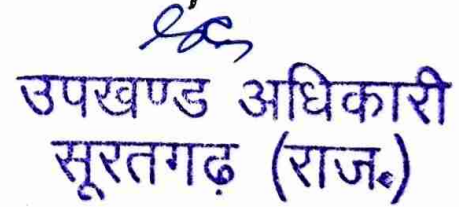 उपखण्ड अधिकारी
सूरतगढ़ (राज॰)